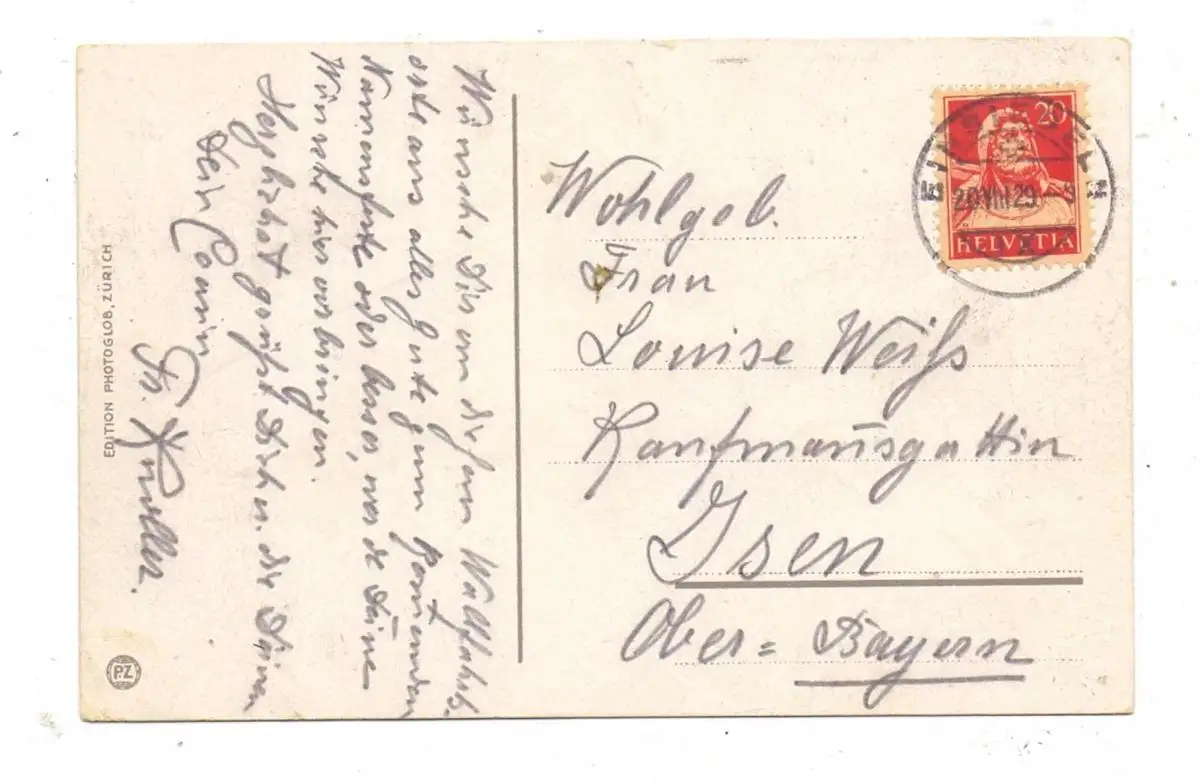 Wünsche Dir von diesem Wallfahrts-
orte aus alles Gute zum kommenden
Namensfeste oder besser, werde Deine
Wünsche hier vorbringen.
Herzlichst grüßt Dich u. die Deinen
Dein Cousin
Fr. Knoller.
EDITION PHOTOGLOB, ZÜRICH
PZ
20
20 VIII 29
HELVETIA
Wohlgeb.
Frau
Louise Weiß
Kaufmannsgattin
Isen
Ober=Bayern